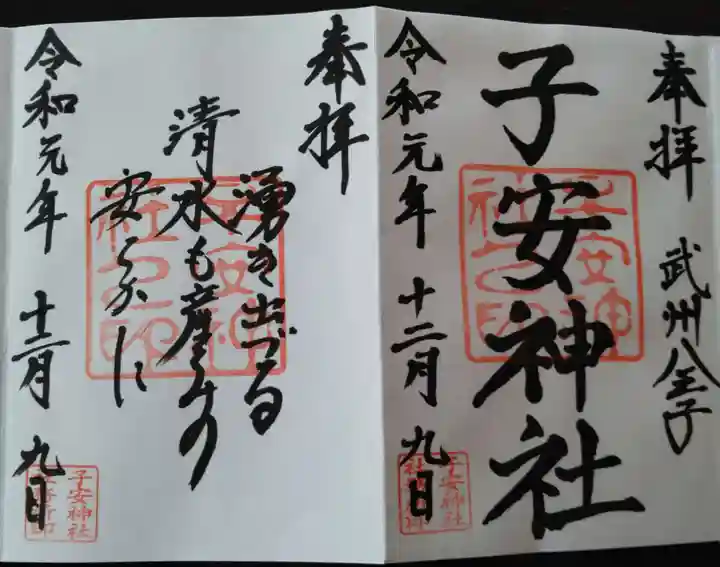 奉拝 武州八王子
子安神社
令和元年 十二月 九日
子安神社
奉拝
湧き出づる
清水も産みの
安らかに
令和元年 十二月 九日
子安神社